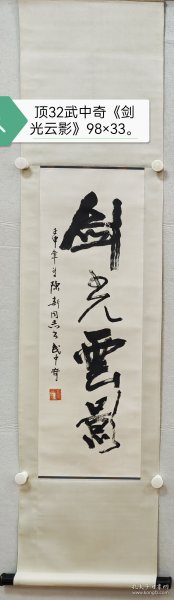 顶32武中奇《剑
光云影》98×33。
剑光雲影
壬申年为陈新同志书武中奇
孔夫子旧书网
www.kongfz.com